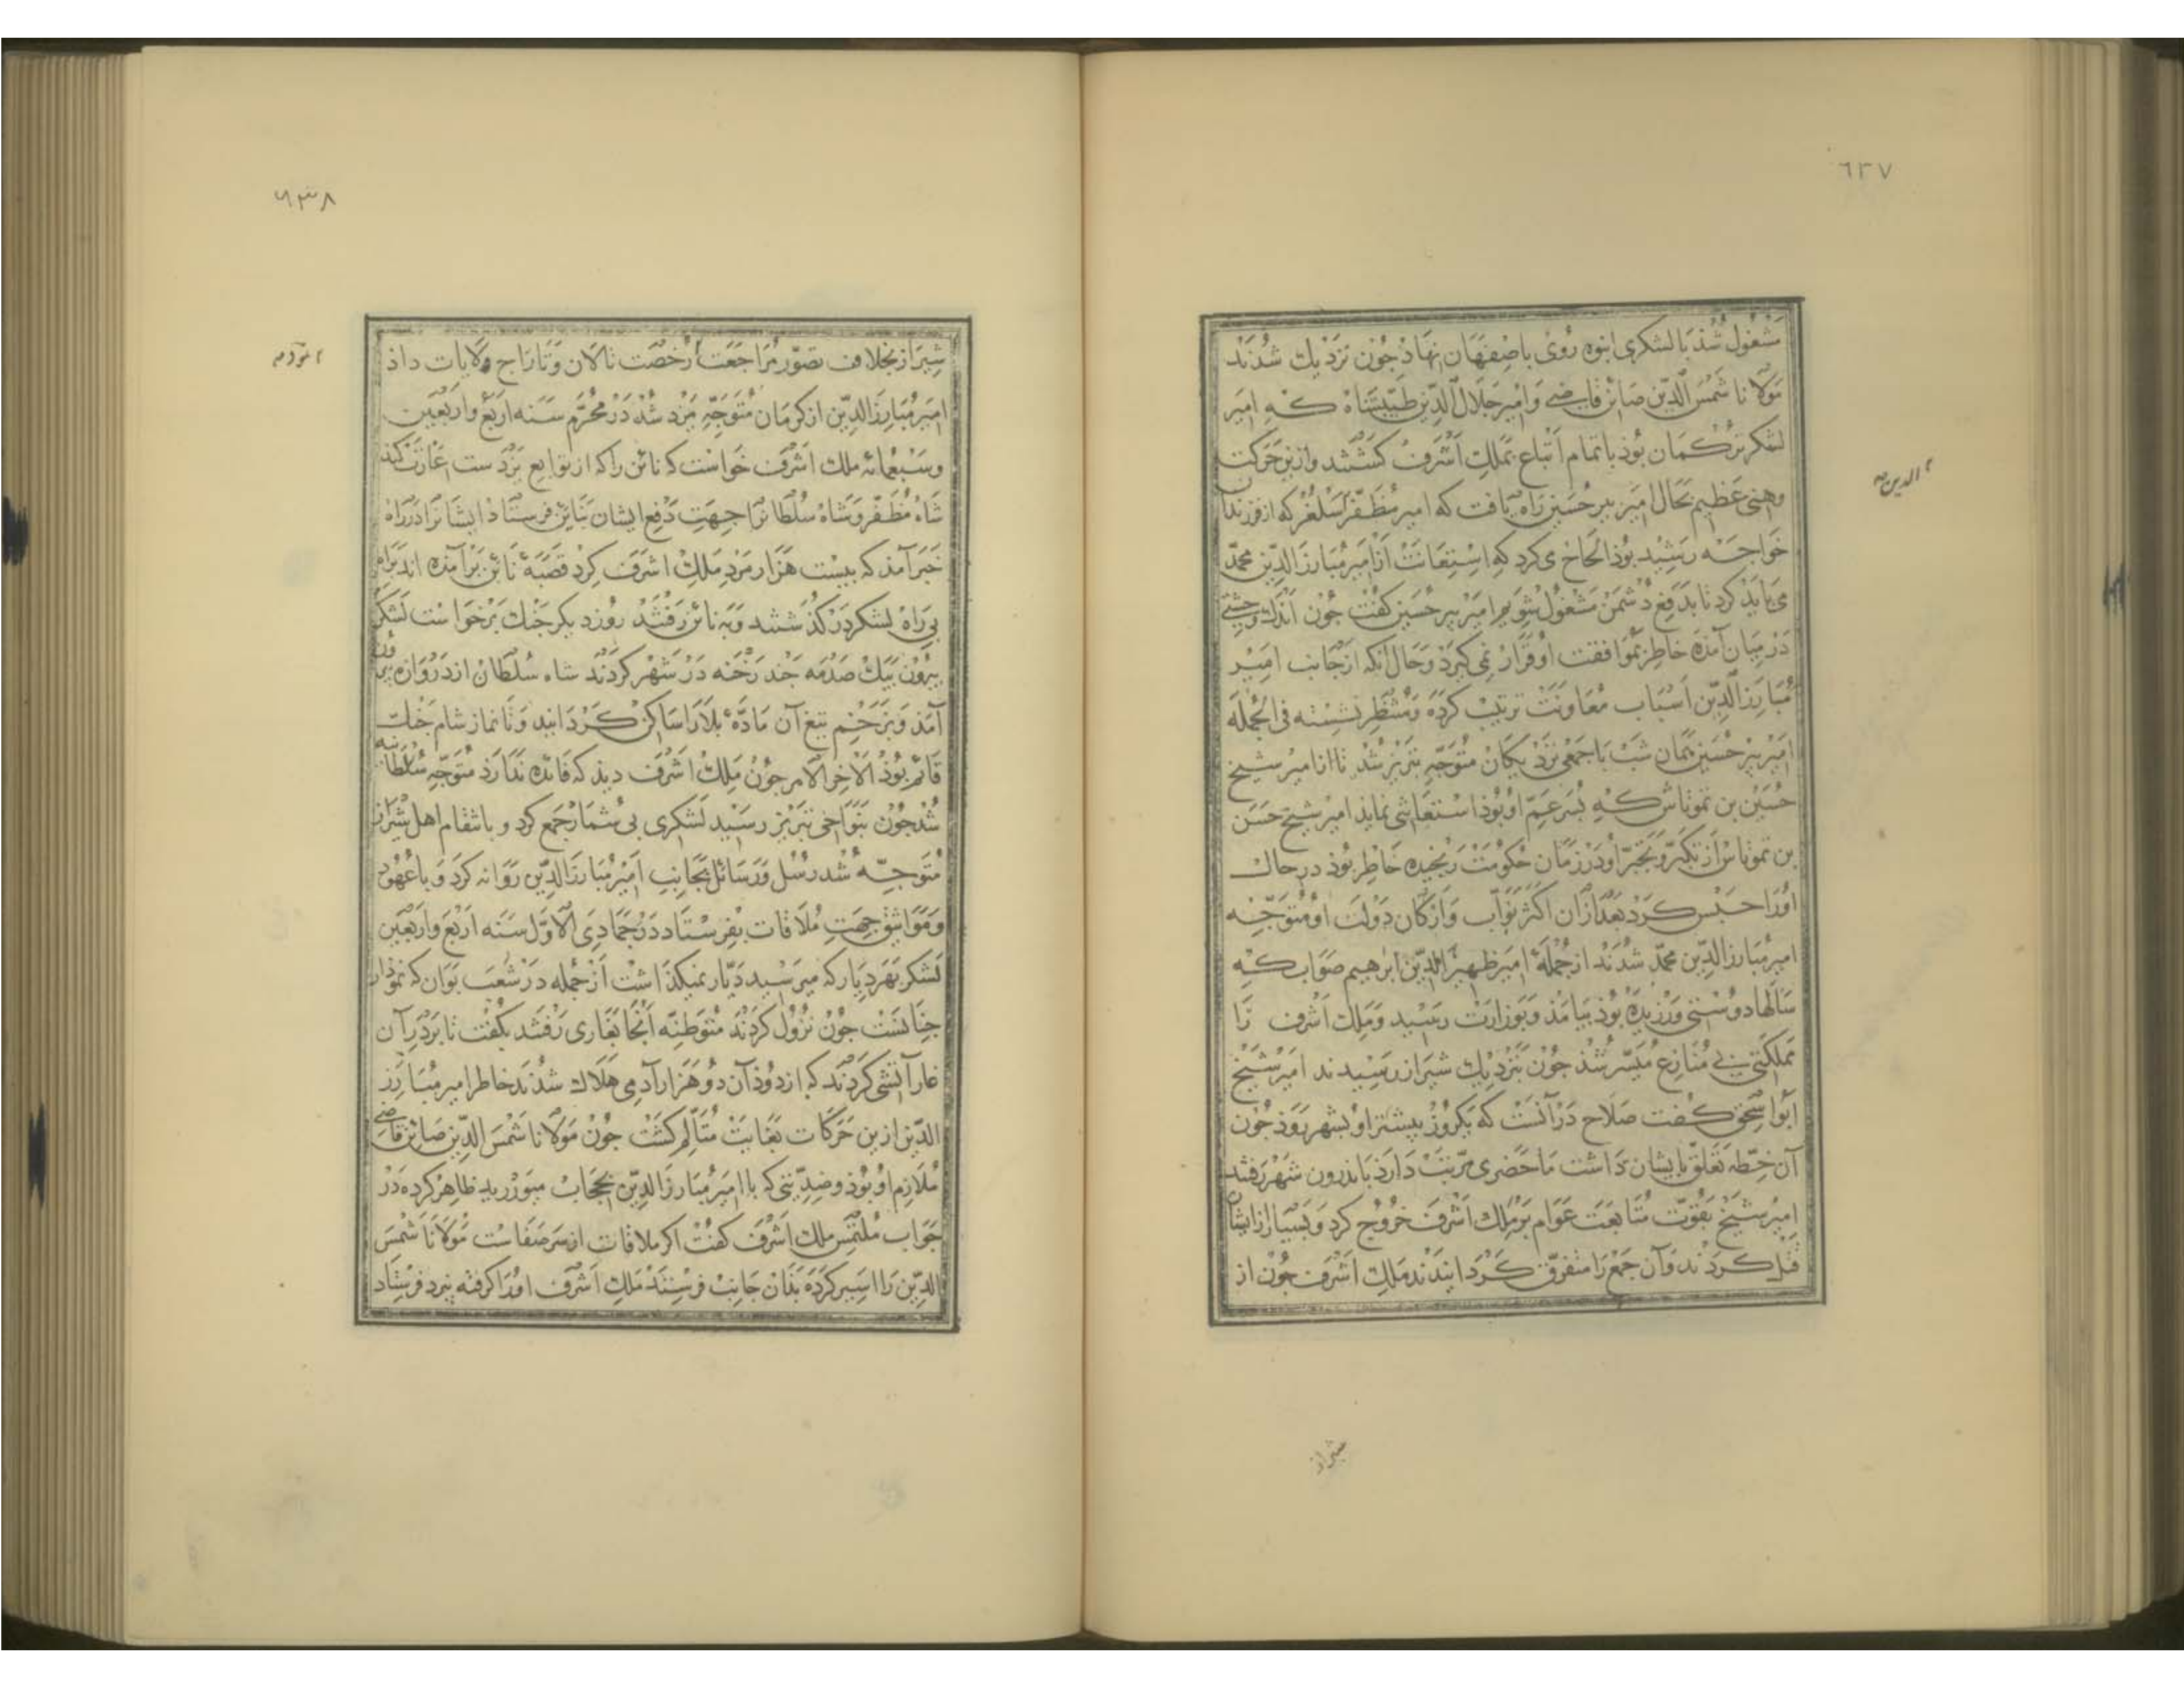 ٦٣٧
مشغول شذ با لشکری انبوه روی باصفهان نهاد جون نزدیك شدند
مولانا شمس الدین صائن قاضی و امیر جلال الدین طیبشاه که امیر
لشکر ترکمان بوذ با تمام اتباع بملك اشرف کشتند و ازین حرکت
وهنی عظیم بحال امیر پیر حسین راه یافت که امیر مظفر اسلغر که از فرزندان
خواجه رشید بوذ الحاح می کرد که استعانت از امیر مبارز الدین محمد
می باید کرد تا بدفع دشمن مشغول شویم امیر پیر حسین کفت جون اندك وحشتی
در میان آمذه خاطر بموافقت او قرار نمی کیرذ و حال آنکه از جانب امیر
مبارز الدین اسباب معاونت ترتیب کرده و منتظر نشسته فی الجمله
امیر پیر حسین همان شب با جمعی نزدیکان متوجه تبریز شد تا از امیر شیخ
حسن بن تموتاش که پسر عم او بوذ استعانتی نماید امیر شیخ حسن
بن تموتاش از تکبر و تجبر او در زمان حکومت رنجیده خاطر بوذ در حال
اورا حبس کرد بعد از آن اکثر نواب و ارکان دولت او متوجه
امیر مبارز الدین محمد شدند از جمله امیر ظهیر الدین ابرهیم صواب که
سالها دوستی ورزیده بوذ بیامذ و بوزارت رسید و ملك اشرف را
مملکتی بی منازع میسر شذ جون بنزدیك شیراز رسیدند امیر شیخ
ابو اسحق کفت صلاح در آنست که یکروز پیشتر او بشهر روذ جون
آن خطه تعلق بایشان داشت ما حضری مرتب دارذ باندرون شهر رفتند
امیر شیخ بقوت متابعت عوام بر ملك اشرف خروج کرد و بسیار از ایشان
قتل کردند و آن جمع را متفرق کردانیدند ملك اشرف جون از
الدین
شیراز
۶۳۸
شیراز بخلاف تصور مراجعت رخصت تالان و تاراج ولایات داذ
امیر مبارز الدین از کرمان متوجه یزد شد در محرم سنه اربع و اربعین
و سبعمائه ملك اشرف خواست که نائن را که از توابع یزدست غارت کند
شاه مظفر و شاه سلطانرا جهت دفع ایشان بنائن فرستاد ایشانرا در راه
خبر آمذ که بیست هزار مرد ملك اشرف کرد قصبه نائن بر آمده اند براه
بی راه لشکر در کذشتند و به نائن رفتند روز دیکر جنك بر خواست لشکر
بیرون بیك صدمه جند رخنه در شهر کردند شاه سلطان از دروازه بیرون
آمذ و بزخم تیغ آن ماده بلا را ساکن کردانید و تا نماز شام جنك
قائم بوذ الاخر الامر جون ملك اشرف دیذ که فائده ندارذ متوجه سلطانیه
شد جون بنواحی تبریز رسید لشکری بی شمار جمع کرد و بانتقام اهل شیراز
متوجه شد رسل و رسائل بجانب امیر مبارز الدین روانه کرد و با عهود
و مواثیق جهت ملاقات بفرستاد در جمادی الاول سنه اربع و اربعین
لشکر بهر دیار که میرسید دیار نمیکذاشت از جمله در شعب بوان که نمودار
جنانست جون نزول کردند متوطنه آنجا بغاری رفتند بکفت تا بر در آن
غار آتشی کردند که از دوذ آن دو هزار آدمی هلاك شدند خاطر امیر مبارز
الدین ازین حرکات بغایت متألم کشت جون مولانا شمس الدین صائن قاضی
ملازم او بوذ و ضدیتی که با امیر مبارز الدین بحجاب میورزید ظاهر کرده در
جواب ملتمس ملك اشرف کفت اکر ملاقات از سر صفاست مولانا شمس
الدین را اسیر کرده بذان جانب فرستند ملك اشرف اورا کرفته بیزد فرستاد